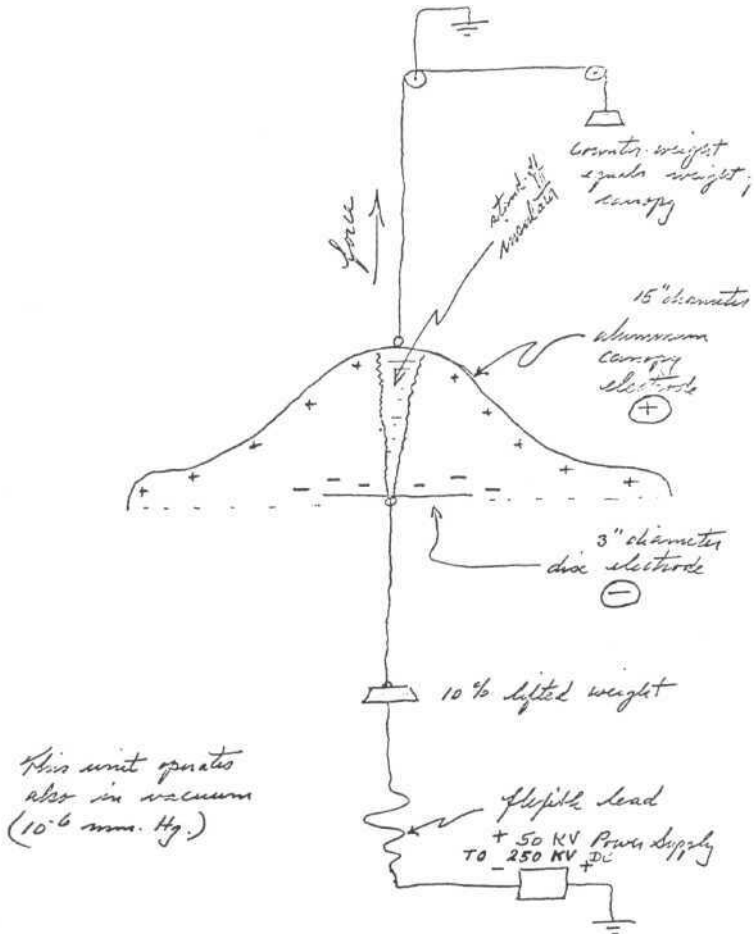 Counter-weight
equals weight of
canopy
force
15" diameter
aluminum
canopy
electrode
+
3" diameter
disc electrode
−
10% lifted weight
This unit operates
also in vacuum
(10-6 mm. Hg.)
flexible lead
+ 50 KV Power Supply
TO 250 KV DC
- +